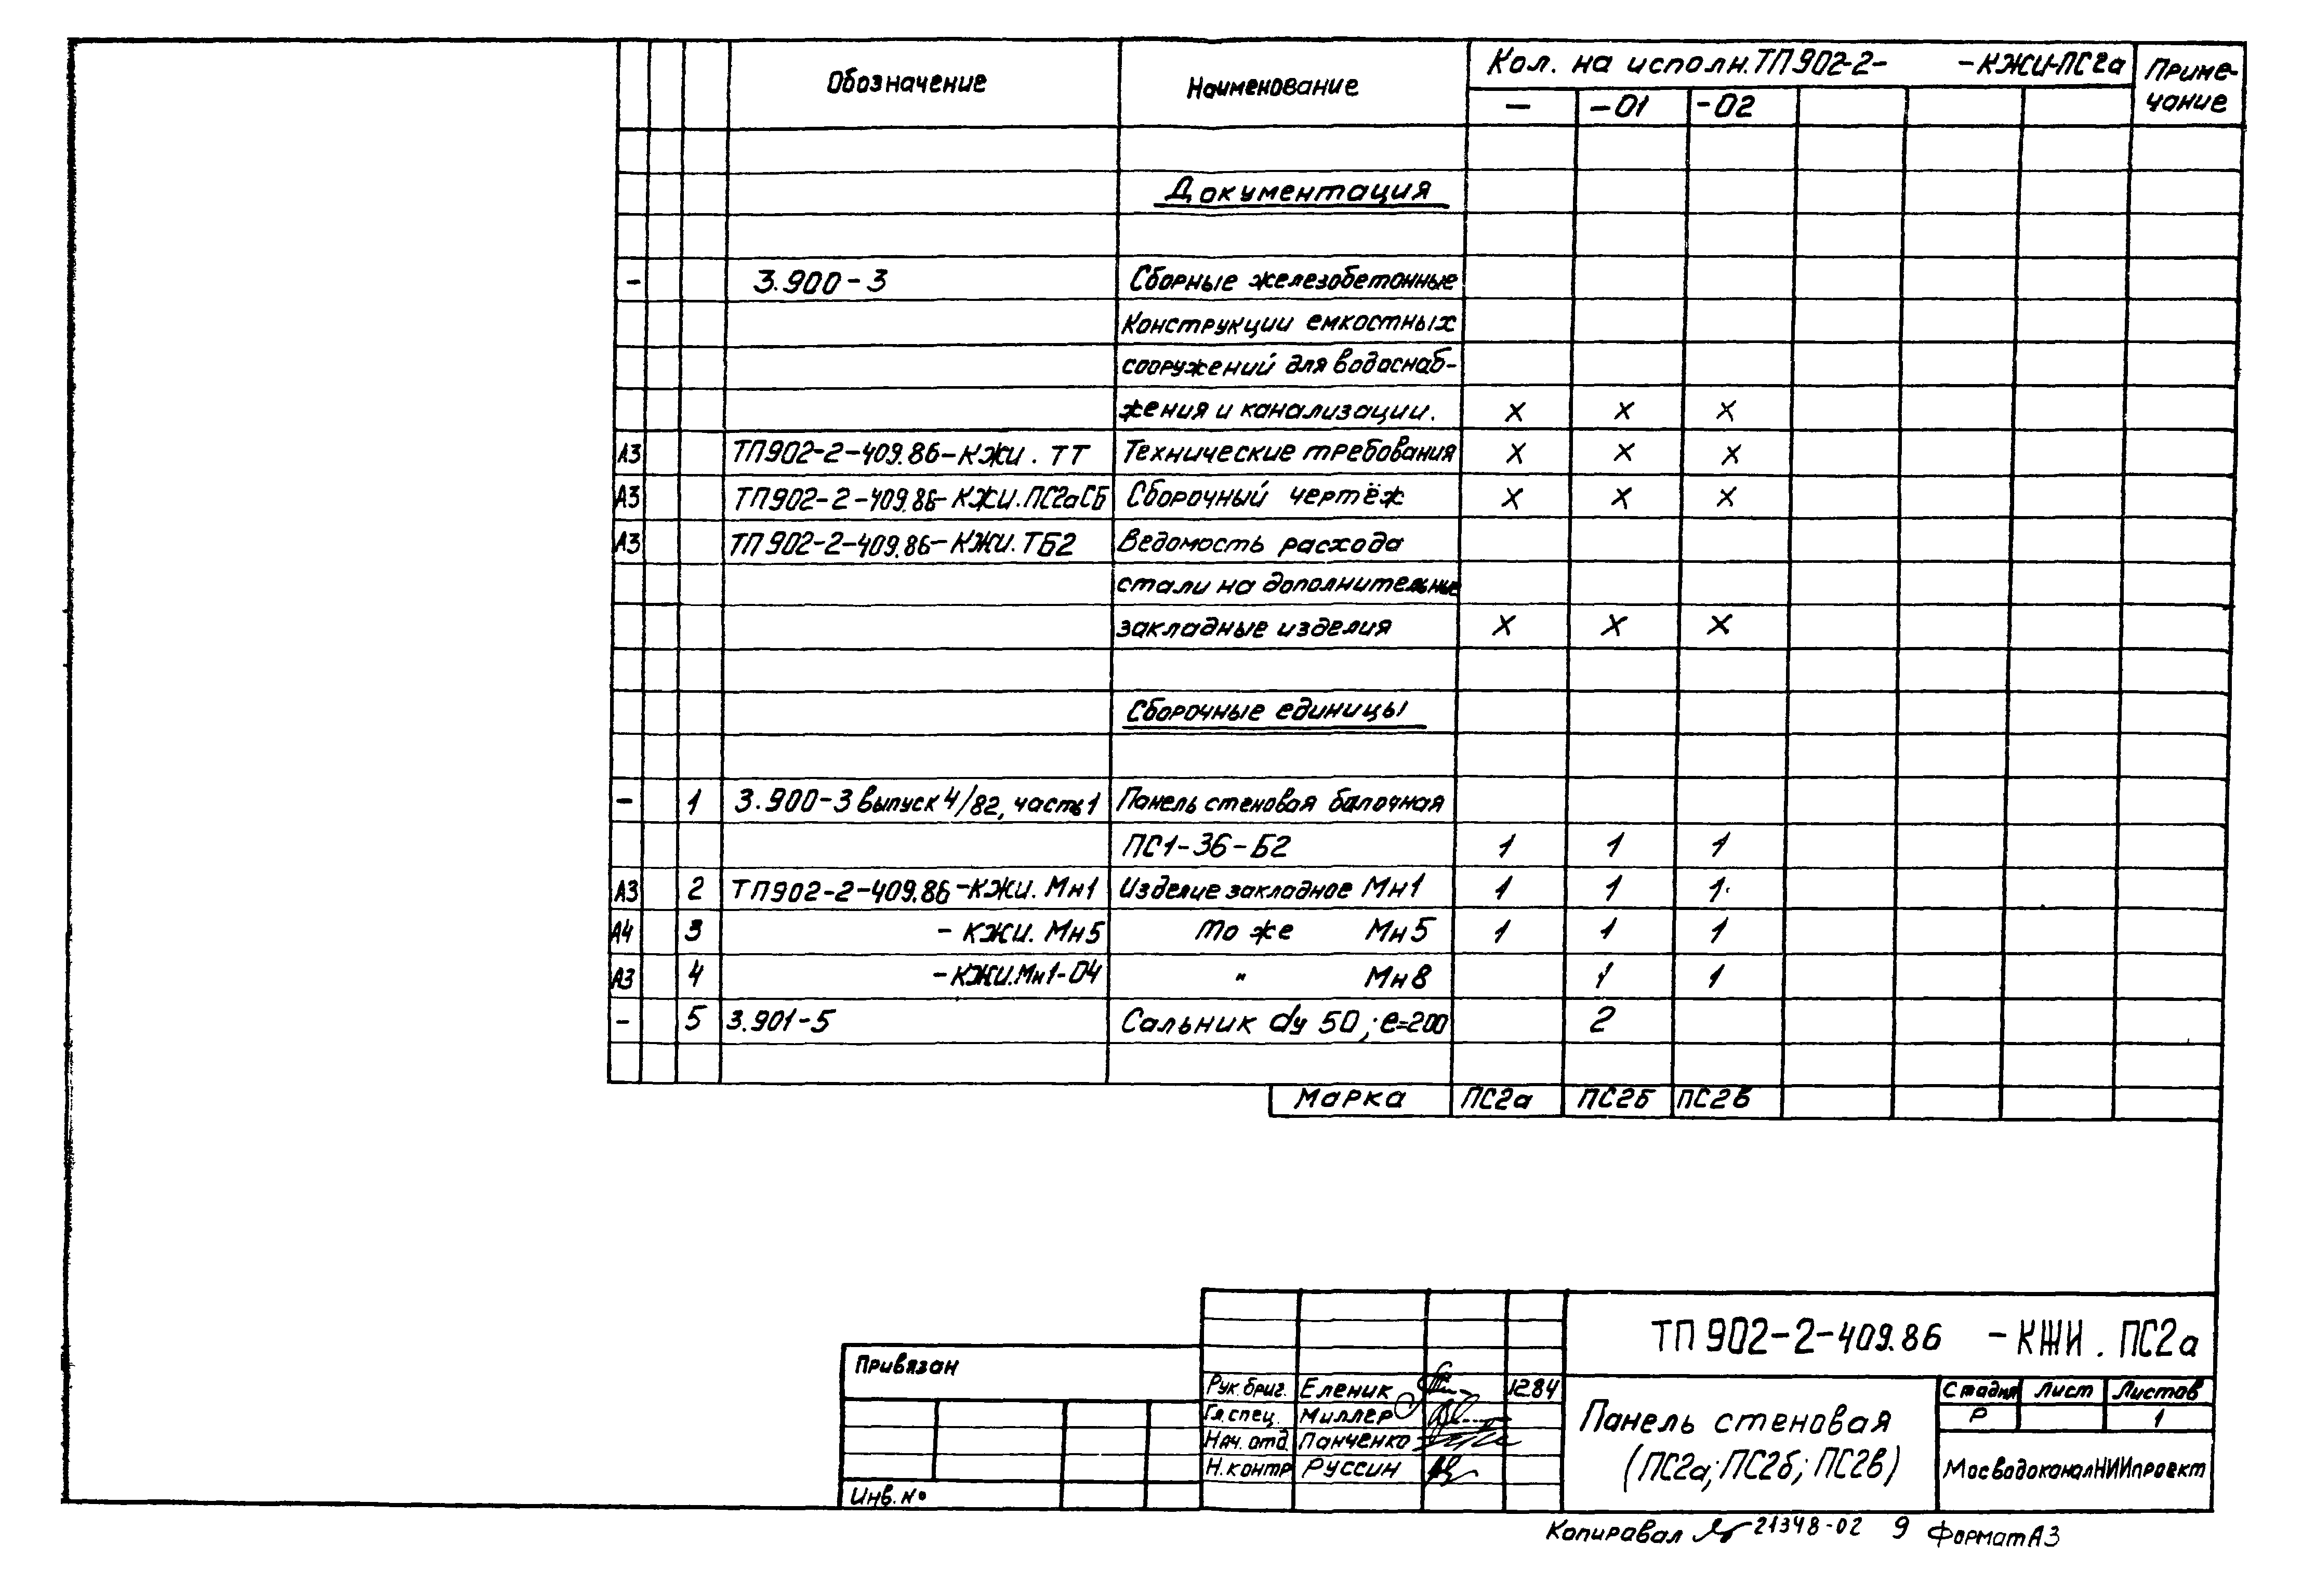 Обозначение Наименование Кол. на исполн. ТП902-2- -КЖИ-ПС2а Приме-
чание
— -01 -02
Документация
- 3.900-3 Сборные железобетонные
конструкции емкостных
сооружений для водоснаб-
жения и канализации. x x x
А3 ТП902-2-409.86-КЖИ. ТТ Технические требования x x x
А3 ТП902-2-409.86-КЖИ.ПС2аСБ Сборочный чертёж x x x
А3 ТП902-2-409.86-КЖИ.ТБ2 Ведомость расхода
стали на дополнительные
закладные изделия x x x
Сборочные единицы
- 1 3.900-3 выпуск 4/82, часть 1 Панель стеновая балочная
ПС1-36-Б2 1 1 1
А3 2 ТП902-2-409.86-КЖИ. Мн1 Изделие закладное Мн1 1 1 1
А4 3 -КЖИ. Мн5 То же Мн5 1 1 1
А3 4 -КЖИ.Мн1-04 " Мн8 1 1
- 5 3.901-5 Сальник dу 50; е=200 2
Марка ПС2а ПС2б ПС2в
ТП902-2-409.86 -КЖИ. ПС2а
Привязан
Рук.бриг. Еленик 12.84
Гл.спец. Миллер
Нач.отд. Панченко
Н.контр Руссин
Инв.№
Панель стеновая
(ПС2а; ПС2б; ПС2в)
Стадия Лист Листов
Р 1
МосводоканалНИИпроект
Копировал 21348-02 9 Формат А3